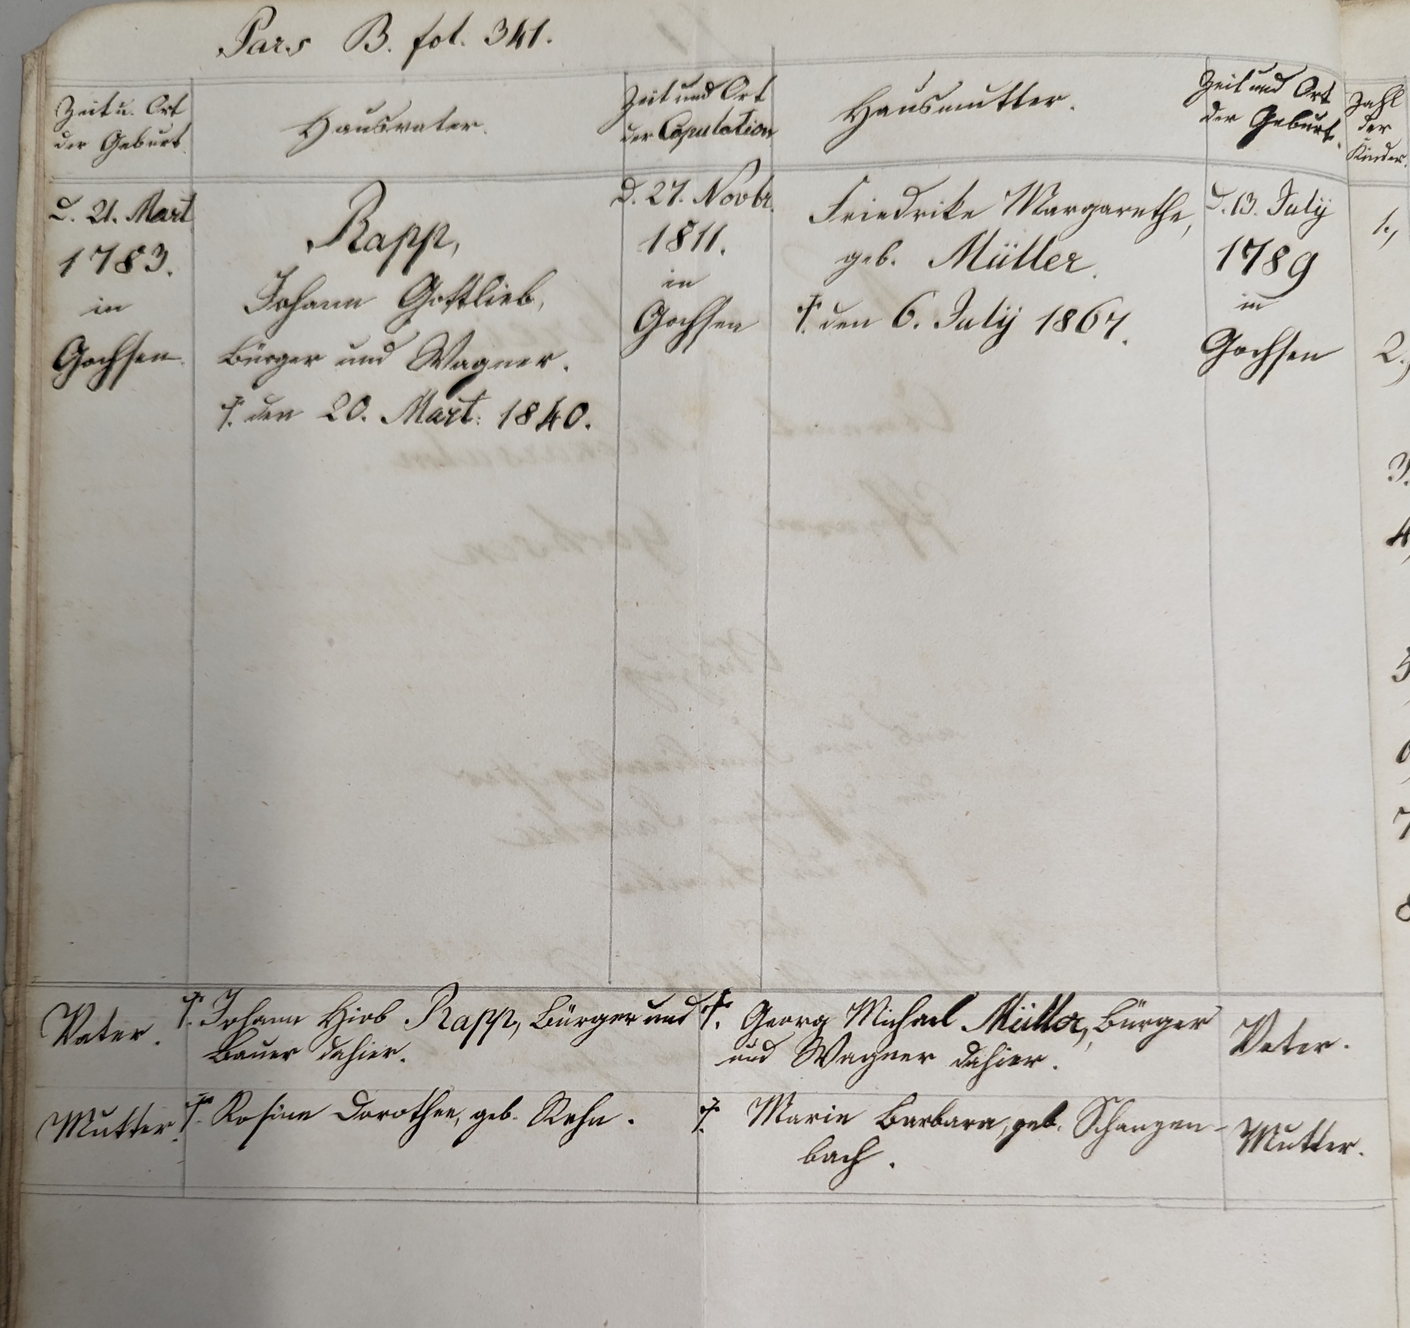 Pars B. fol. 341.
Zeit u. Ort
der Geburt.
Hausvater.
Zeit und Ort
der Copulation
Hausmutter.
Zeit und Ort
der Geburt.
Zahl
der
Kinder.
d. 21. Mart
1783.
in
Gochsen.
Rapp,
Johann Gottlieb,
Bürger und Wagner.
†. den 20. Mart. 1840.
d. 27. Novbr.
1811.
in
Gochsen
Friedrike Margarethe,
geb. Müller.
†. den 6. July 1867.
d. 13. July
1789
in
Gochsen
1.,
2.,
3.
4.
5
6
7
8
Vater.
†. Johann Hiob Rapp, Bürger und
Bauer dahier.
†. Georg Michael Müller, Bürger
und Wagner dahier.
Vater.
Mutter.
†. Rosine Dorothee, geb.
†. Marie Barbara, geb. Schanzen-
bach.
Mutter.